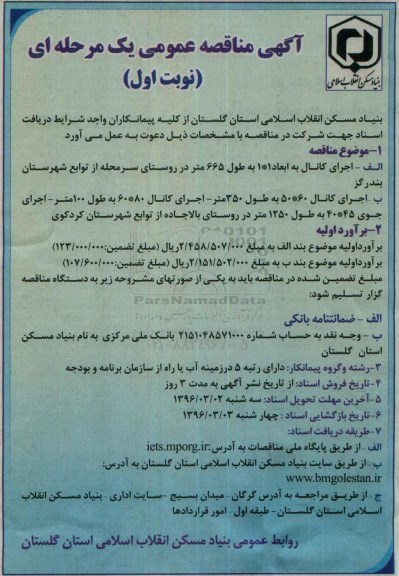 آگهی مناقصه عمومی یک مرحله ای
(نوبت اول)
بنیاد مسکن انقلاب اسلامی
بنیاد مسکن انقلاب اسلامی استان گلستان از کلیه پیمانکاران واجد شرایط دریافت
اسناد جهت شرکت در مناقصه با مشخصات ذیل دعوت به عمل می آورد
۱-موضوع مناقصه
الف - اجرای کانال به ابعاد۱*۱ به طول ۶۶۵ متر در روستای سرمحله از توابع شهرستان
بندرگز
ب -اجرای کانال ۶۰*۵۰ به طول ۳۵۰متر- اجرای کانال ۸۰*۶۰ به طول ۱۰۰متر- اجرای
جوی ۴۵*۴۰ به طول ۱۲۵۰ متر در روستای بالاجاده از توابع شهرستان کردکوی
۲-برآورد اولیه
برآورداولیه موضوع بند الف به مبلغ ۲/۴۵۸/۵۰۷/۰۰۰ریال (مبلغ تضمین:۱۲۳/۰۰۰/۰۰۰)
برآورداولیه موضوع بند ب به مبلغ ۲/۱۵۱/۵۰۲/۰۰۰ریال (مبلغ تضمین:۱۰۷/۶۰۰/۰۰۰)
مبلغ تضمین شده در مناقصه باید به یکی از صورتهای مشروحه زیر به دستگاه مناقصه
گزار تسلیم شود:
ParsNamadData
الف - ضمانتنامه بانکی
ب - وجه نقد به حساب شماره ۲۱۵۱۰۴۸۵۷۱۰۰۰ بانک ملی مرکزی به نام بنیاد مسکن
استان گلستان
۳-رشته وگروه پیمانکار: دارای رتبه ۵ درزمینه آب یا راه از سازمان برنامه و بودجه
۴-تاریخ فروش اسناد: از تاریخ نشر آگهی به مدت ۳ روز
۵-آخرین مهلت تحویل اسناد: سه شنبه ۱۳۹۶/۰۳/۰۲
۶-تاریخ بازگشایی اسناد : چهار شنبه ۱۳۹۶/۰۳/۰۳
۷-طریقه دریافت اسناد:
الف -از طریق پایگاه ملی مناقصات به آدرس:iets.mporg.ir
ب - از طریق سایت بنیاد مسکن انقلاب اسلامی استان گلستان به آدرس:
www.bmgolestan.ir
ج - از طریق مراجعه به آدرس گرگان - میدان بسیج -سایت اداری - بنیاد مسکن انقلاب
اسلامی استان گلستان- طبقه اول- امور قراردادها
روابط عمومی بنیاد مسکن انقلاب اسلامی استان گلستان